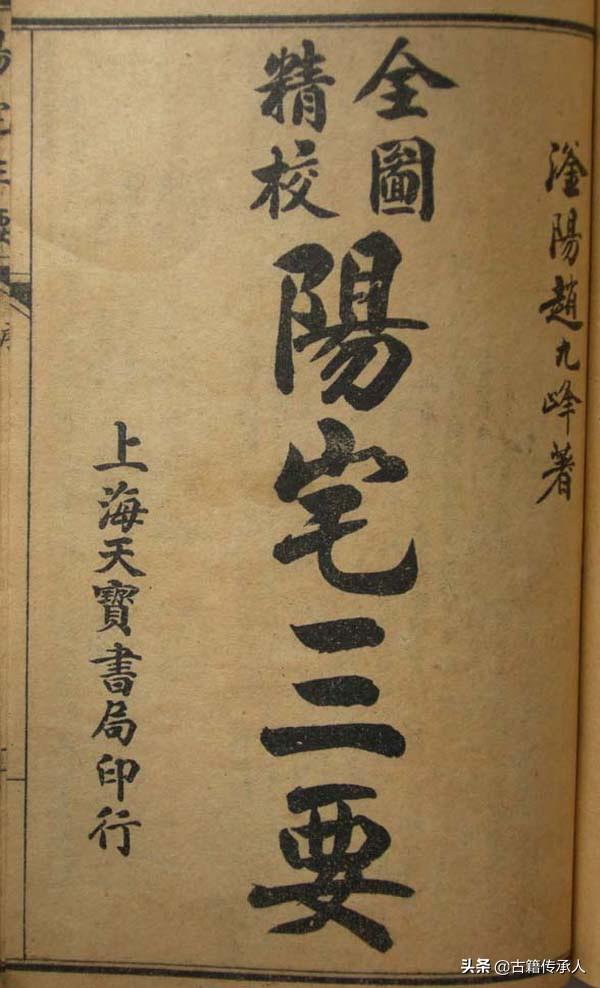 滏陽趙九峰著
全圖
精校
陽宅三要
上海天寶書局印行
头条 @古籍传承人